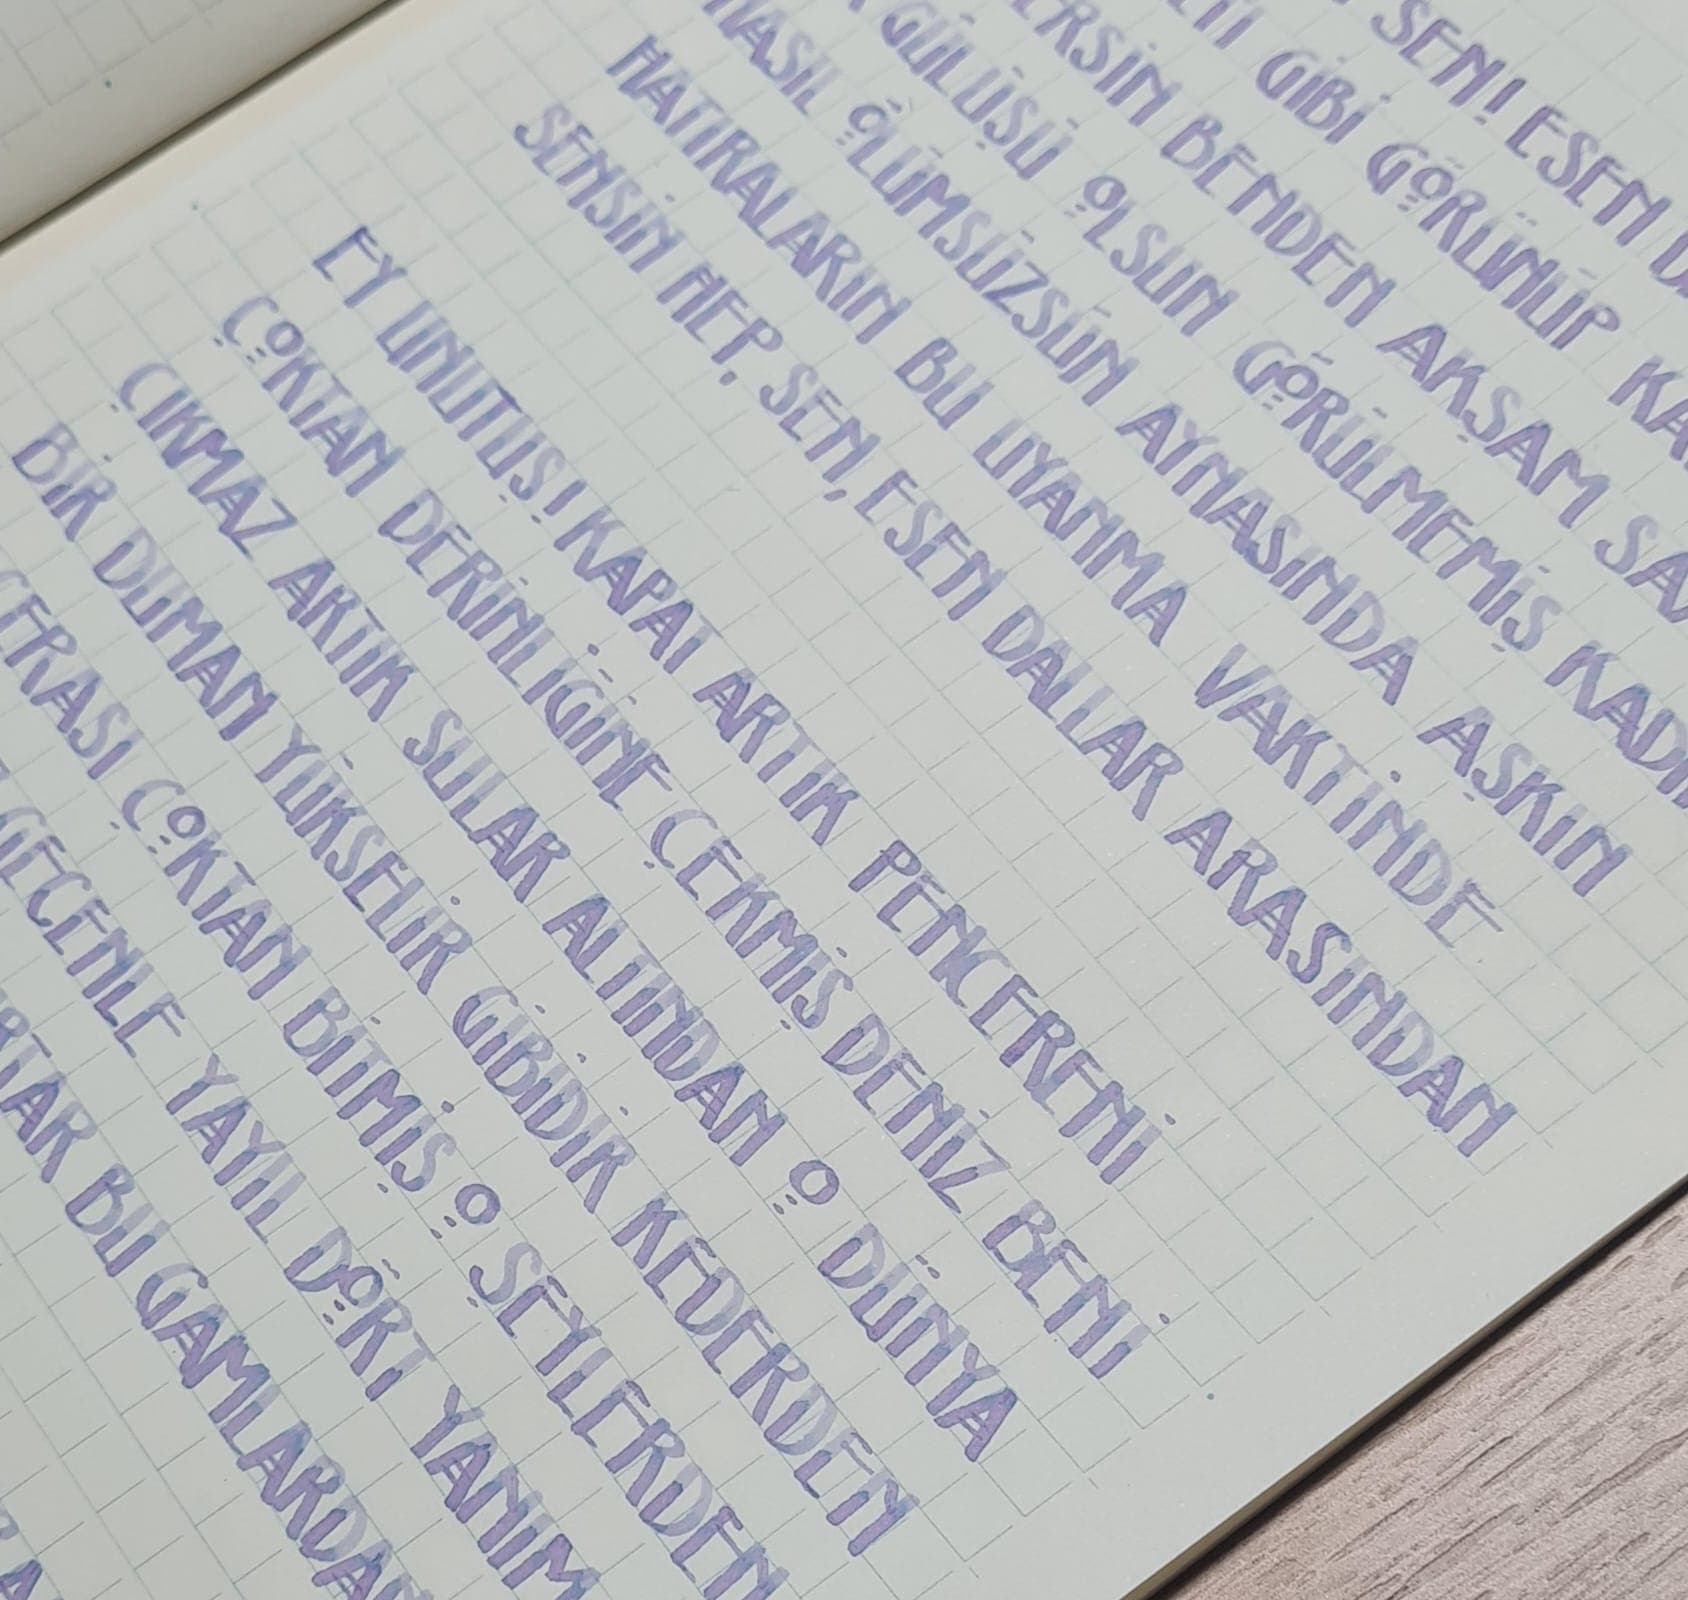 SEN! ESEN
GİBİ GÖRÜNÜP
BENDEN AKŞAM
GÜLÜŞÜ OLSUN GÖRÜLMEMİŞ
NASIL ÖLÜMSÜZSÜN AYNASINDA AŞKIN
HATIRALARIN BU UYANMA VAKTİNDE
SENSİN HEP, SEN, ESEN DALLAR ARASINDAN
EY UNUTUŞ! KAPAT ARTIK PENCERENİ
ÇOKTAN DERİNLİĞİNE ÇEKMİŞ DENİZ BENİ
ÇIKMAZ ARTIK SULAR ALTINDAN O DÜNYA
BİR DUMAN YÜKSELİR GİBİDİR KEDERDEN
CERASI ÇOKTAN BİTMİŞ O ŞEYLERDEN
GECENLE YAYIL DÖRT YANIM
BU GAMLARDAN